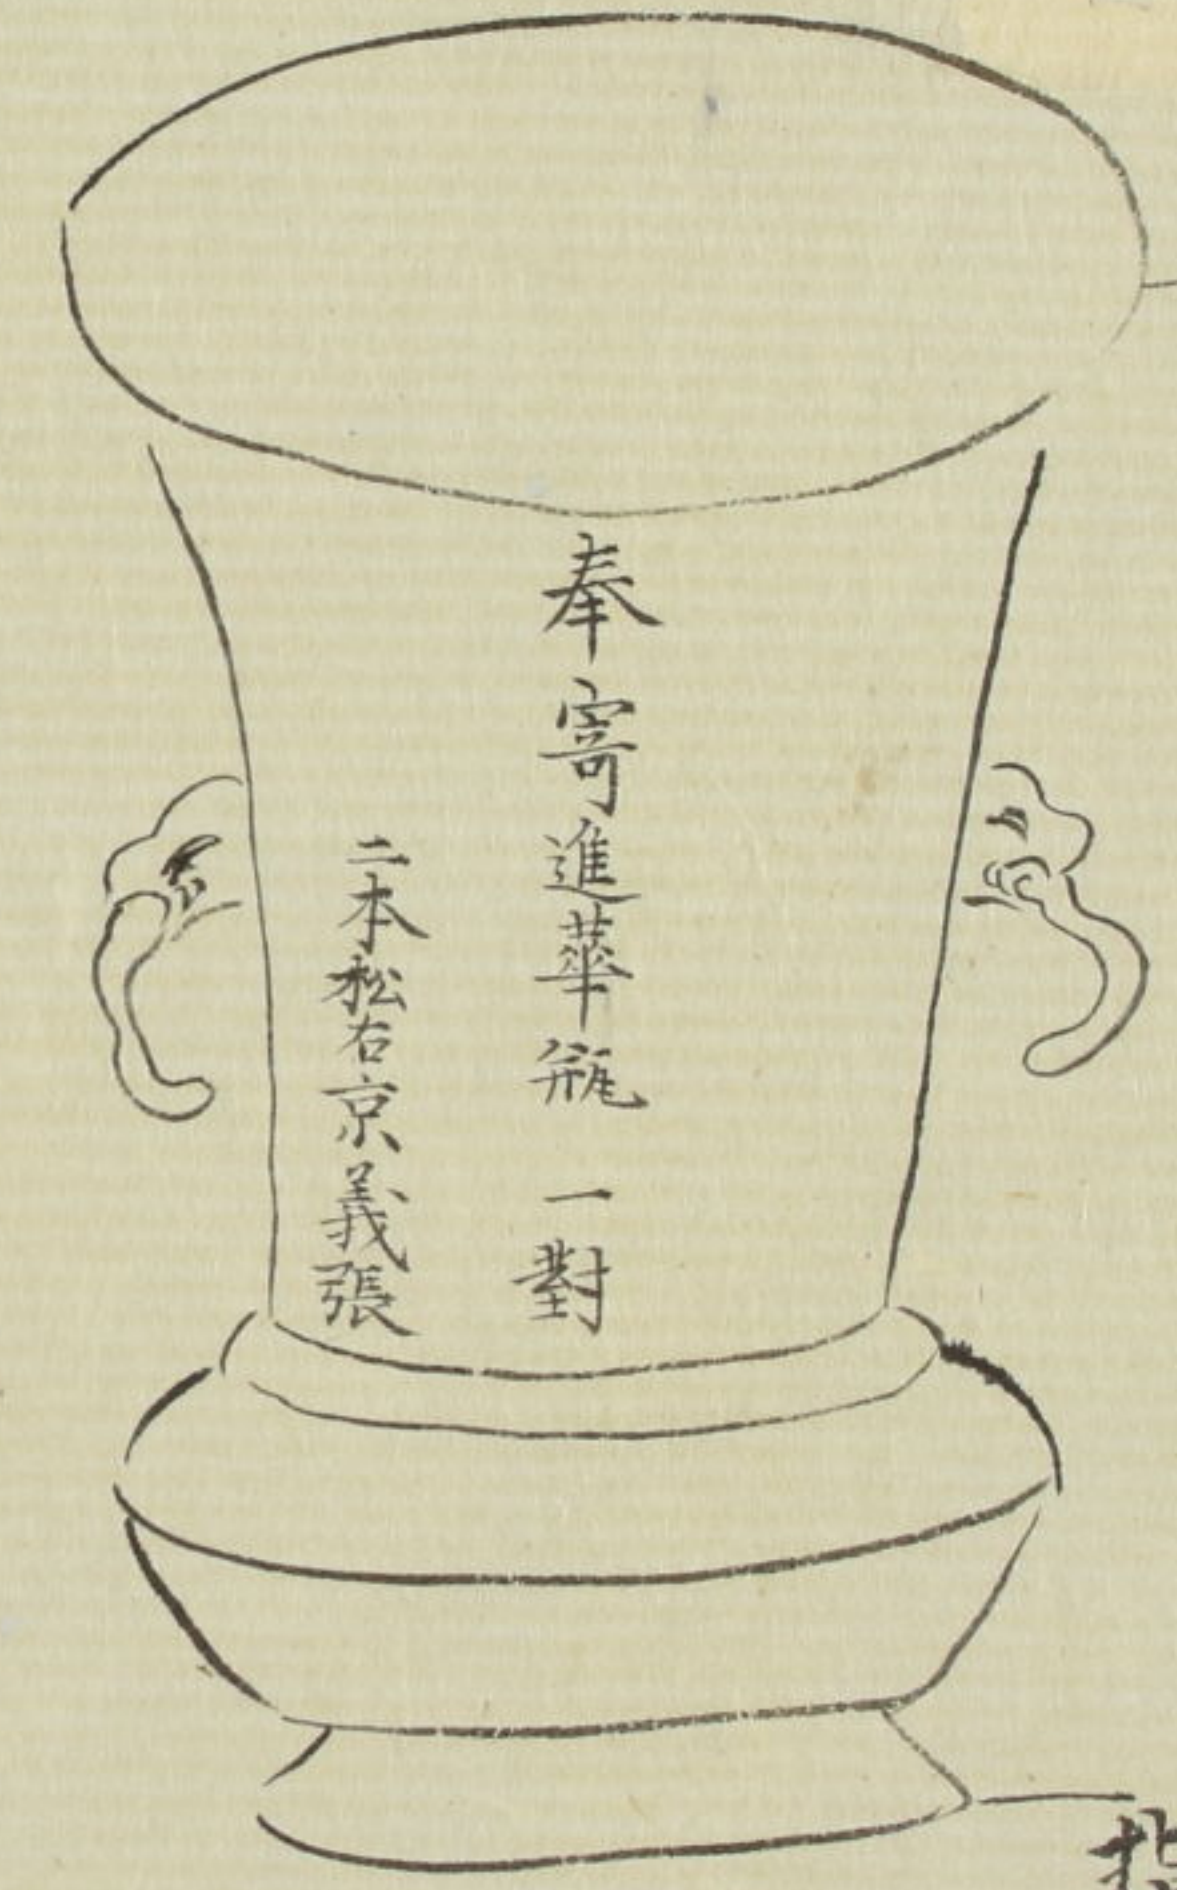 奉寄進華瓶一對
二本松右京義張